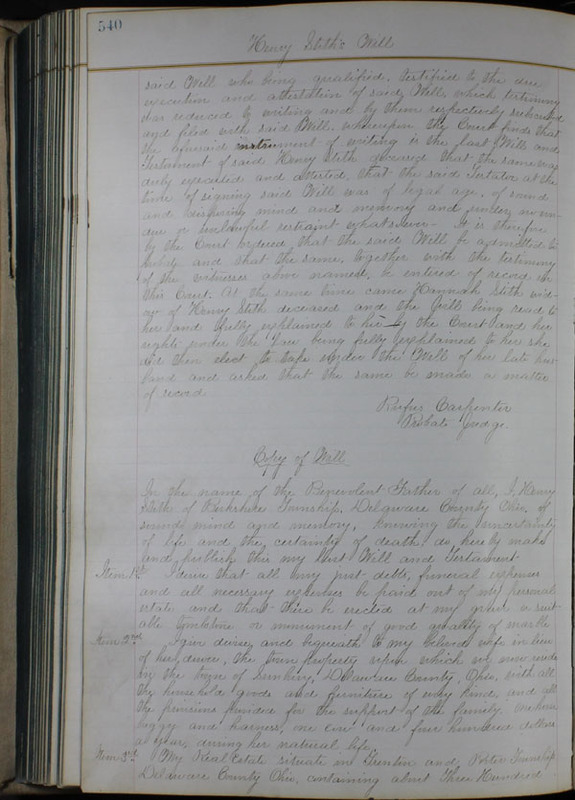 540
Henry Stith's Will
said Will who being qualified, testified to the due
execution and attestation of said Will, which testimony
was reduced to writing and by them respectively subscribed
and filed with said Will. whereupon the Court finds that
the aforesaid instrument of writing is the last Will and
Testament of said Henry Stith deceased that the same was
duly executed and attested, that the said Testator at the
time of signing said Will was of legal age, of sound
and disposing mind and memory and under no un-
due or unlawful restraint whatsoever. It is therefore
by the Court ordered, that the said Will be admitted to
probate and that the same, together with the testimony
of the witnesses above named, be entered of record in
this Court. At the same time came Hannah Stith wid-
ow of Henry Stith deceased and the Will being read to
her and fully explained to her by the Court and her
rights under the law being fully explained to her she
did then elect to take under the Will of her late hus-
band and asked that the same be made a matter
of record
Rufus Carpenter
Probate Judge.
Copy of Will
In the name of the Benevolent Father of all, I, Henry
Stith of Berkshire Township, Delaware County Ohio, of
sound mind and memory, knowing the uncertainty
of life and the certainty of death, do hereby make
and publish this my last Will and Testament
Item 1st I desire that all my just debts, funeral expenses
and all necessary expenses be paid out of my personal
estate and that there be erected at my grave a suit-
able tombstone or monument of good quality of marble
Item 2nd I give devise and bequeath to my beloved wife in lieu
of her dower, the town property upon which we now reside
in the town of Sunbury, Delaware County, Ohio, with all
the household goods and furniture of every kind, and all
the provisions provided for the support of the family. One horse
buggy and harness, one cow and four hundred dollars
a year, during her natural life,
Item 3rd My Real Estate situate in Trenton and Porter Township
Delaware County Ohio, containing about Three Hundred